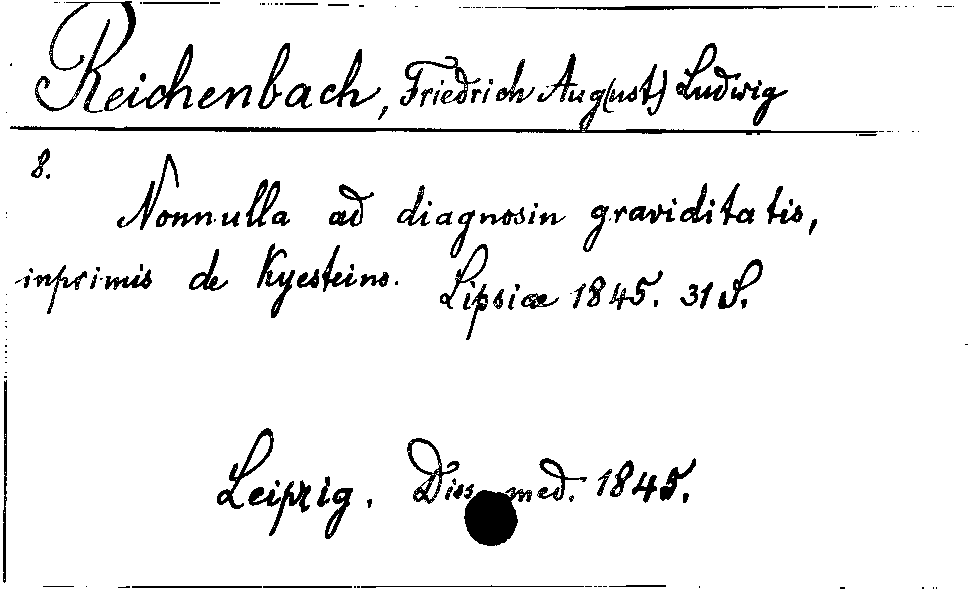 Reichenbach, Friedrich Aug(ust) Ludwig
8.
Nonnulla ad diagnosin graviditatis,
inprimis de Kyesteino. Lipsiae 1845. 31 S.
Leipzig. Diss. med. 1845.